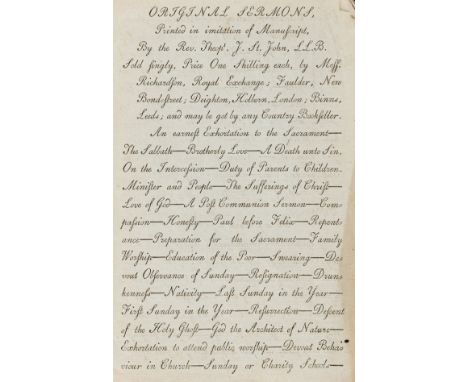 ORIGINAL SERMONS,
Printed in imitation of Manuſcript,
By the Rev. Theopt. J. St. John, L.L.B.
Sold ſingly, Price One Shilling each, by Meſſ.
Richardſon, Royal Exchange; Faulder, New
Bond-ſtreet; Deighton, Holborn, London; Binns,
Leeds; and may be got by any Country Bookſeller.
An earneſt Exhortation to the Sacrament—
The Sabbath—Brotherly Love—A Death unto Sin.
On the Interceſsion—Duty of Parents to Children.
Miniſter and People—The Sufferings of Chriſt—
Love of God—A Poſt Communion Sermon—Com-
paſsion—Honeſty—Paul before Felix—Repent-
ance—Preparation for the Sacrament—Family
Worſhip—Education of the Poor—Swearing—De-
vout Obſervance of Sunday—Reſignation—Drun-
kenneſs—Nativity—Laſt Sunday in the Year—
Firſt Sunday in the Year—Reſurrection—Deſcent
of the Holy Ghoſt—God the Architect of Nature—
Exhortation to attend public worſhip—Devout Beha-
viour in Church—Sunday or Charity Schools—